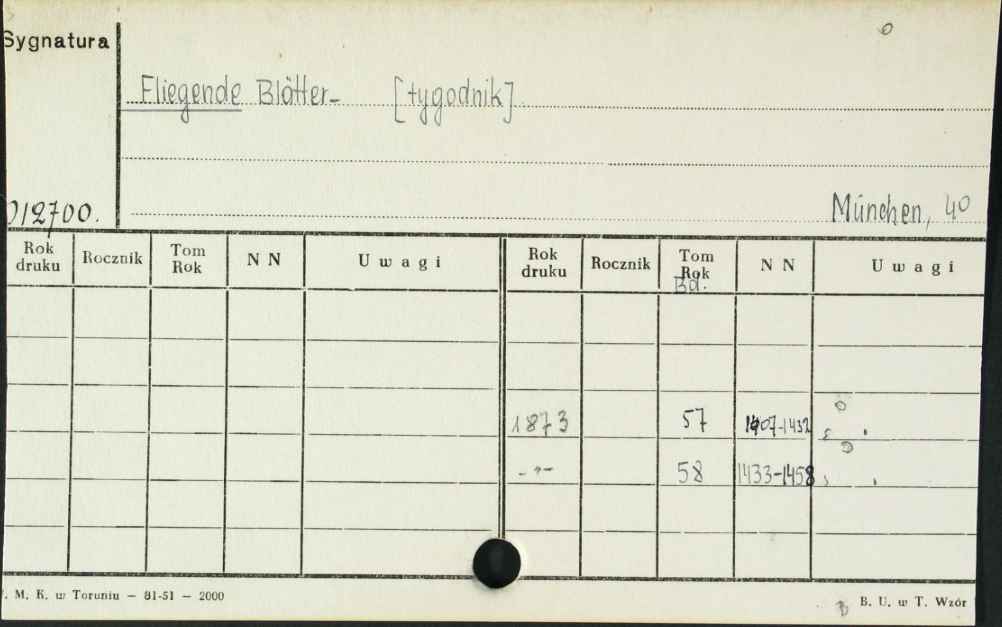 Sygnatura
Fliegende Blätter- [tygodnik]
München, 4o
012700.
Rok druku Rocznik Tom Rok N N Uwagi Rok druku Rocznik Tom Rok Bd. N N Uwagi
1873 57 1407-1432
-"- 58 1433-1458
. M. K. w Toruniu — 81-51 — 2000
B. U. w T. Wzór